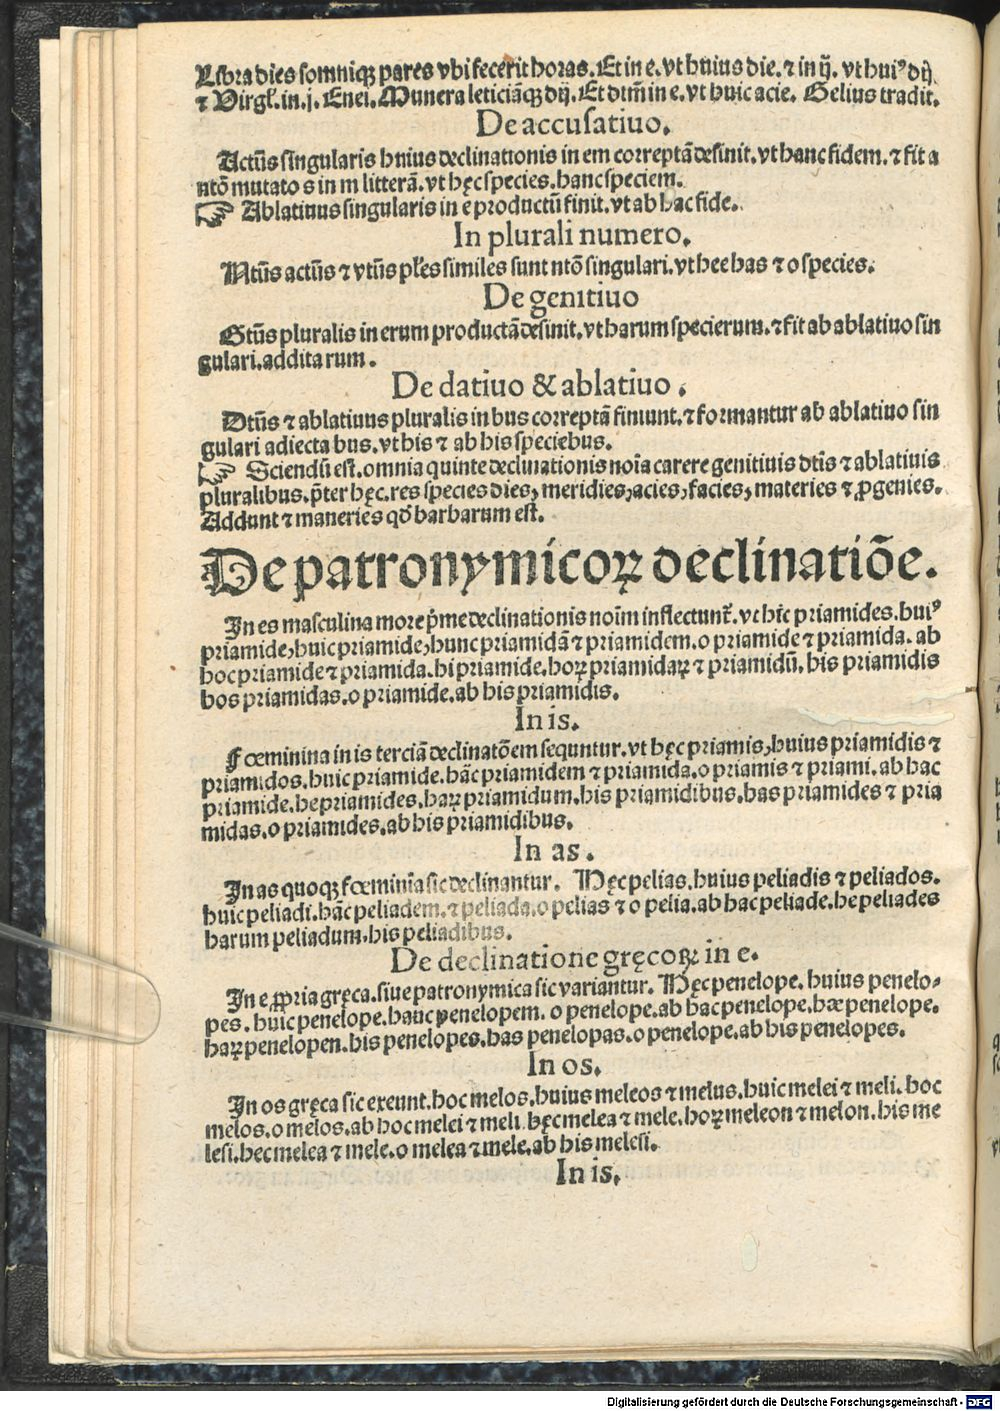 Libra dies somniqꝫ pares vbi fecerit horas. Et in e. vt huius die. ⁊ in ij. vt huiꝰ dij
⁊ Virgl̄. in. j. Enei. Munera leticiāqꝫ dij. Et dtm̄ in e. vt huic acie. Gelius tradit.
De accusatiuo.
Actūs singularis huius declinationis in em correptā desinit. vt hanc fidem. ⁊ fit a
ntō mutato s in m litterā. vt hęc species. hanc speciem.
☞ Ablatiuus singularis in e productū finit. vt ab hac fide.
In plurali numero.
Ntūs actūs ⁊ vtūs pl̄es similes sunt ntō singulari. vt hee has ⁊ o species.
De genitiuo
Gtūs pluralis in erum productā desinit. vt harum specierum. ⁊ fit ab ablatiuo sin
gulari. addita rum.
De datiuo & ablatiuo.
Dtūs ⁊ ablatiuus pluralis in bus correptā finiunt. ⁊ formantur ab ablatiuo sin
gulari adiecta bus. vt his ⁊ ab his speciebus.
☞ Sciendū est. omnia quinte declinationis noīa carere genitiuis dtīs ⁊ ablatiuis
pluralibus. p̄ter hęc. res species dies, meridies, acies, facies, materies ⁊ ꝓgenies.
Addunt ⁊ maneries qd̄ barbarum est.
De patronymicoꝝ declinatiōe.
In es masculina more p̄me declinationis noīm inflectunt̄. vt hīc priamides. huiꝰ
priamide, huic priamide, hunc priamidā ⁊ priamidem. o priamide ⁊ priamida. ab
hoc priamide ⁊ priamida. hi priamide. hoꝝ priamidaꝝ ⁊ priamidū. his priamidis
hos priamidas. o priamide. ab his priamidis.
In is.
Fœminina in is terciā declinatōem sequntur. vt hęc priamis, huius priamidis ⁊
priamidos. huic priamide. hāc priamidem ⁊ priamida. o priamis ⁊ priami. ab hac
priamide. he priamides. haꝝ priamidum. his priamidibus. has priamides ⁊ pria
midas. o priamides. ab his priamidibus.
In as.
In as quoqꝫ fœminīa sic declinantur. Hęc pelias. huius peliadis ⁊ peliados.
huic peliadi. hāc peliadem. ⁊ peliada. o pelias ⁊ o pelia. ab hac peliade. he peliades
harum peliadum. his peliadibus.
De declinatione gręcoꝝ in e.
In e ꝓpria gręca. siue patronymica sic variantur. Hęc penelope. huius penelo-
pes. huic penelope. hanc penelopem. o penelope. ab hac penelope. hæ penelope.
haꝝ penelopen. his penelopes. has penelopas. o penelope. ab his penelopes.
In os.
In os gręca sic exeunt. hoc melos. huius meleos ⁊ melus. huic melei ⁊ meli. hoc
melos. o melos. ab hoc melei ⁊ meli. hęc melea ⁊ mele. hoꝝ meleon ⁊ melon. his me
lesi. hec melea ⁊ mele. o melea ⁊ mele. ab his melesi.
In is.
Digitalisierung gefördert durch die Deutsche Forschungsgemeinschaft - DFG